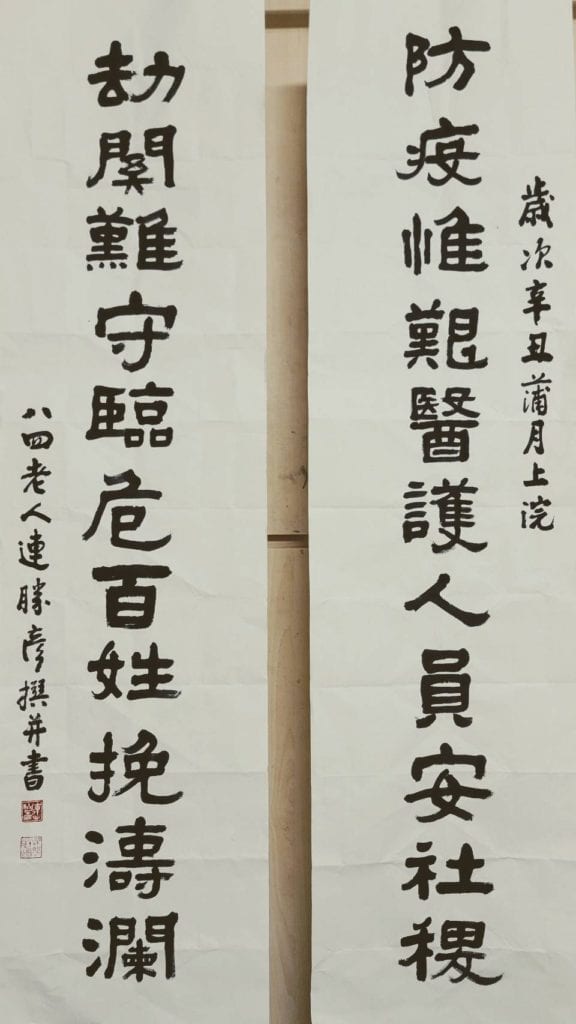 歲次辛丑蒲月上浣
防疫惟艱醫護人員安社稷
劫關難守臨危百姓挽濤瀾
八四老人連勝彥撰并書